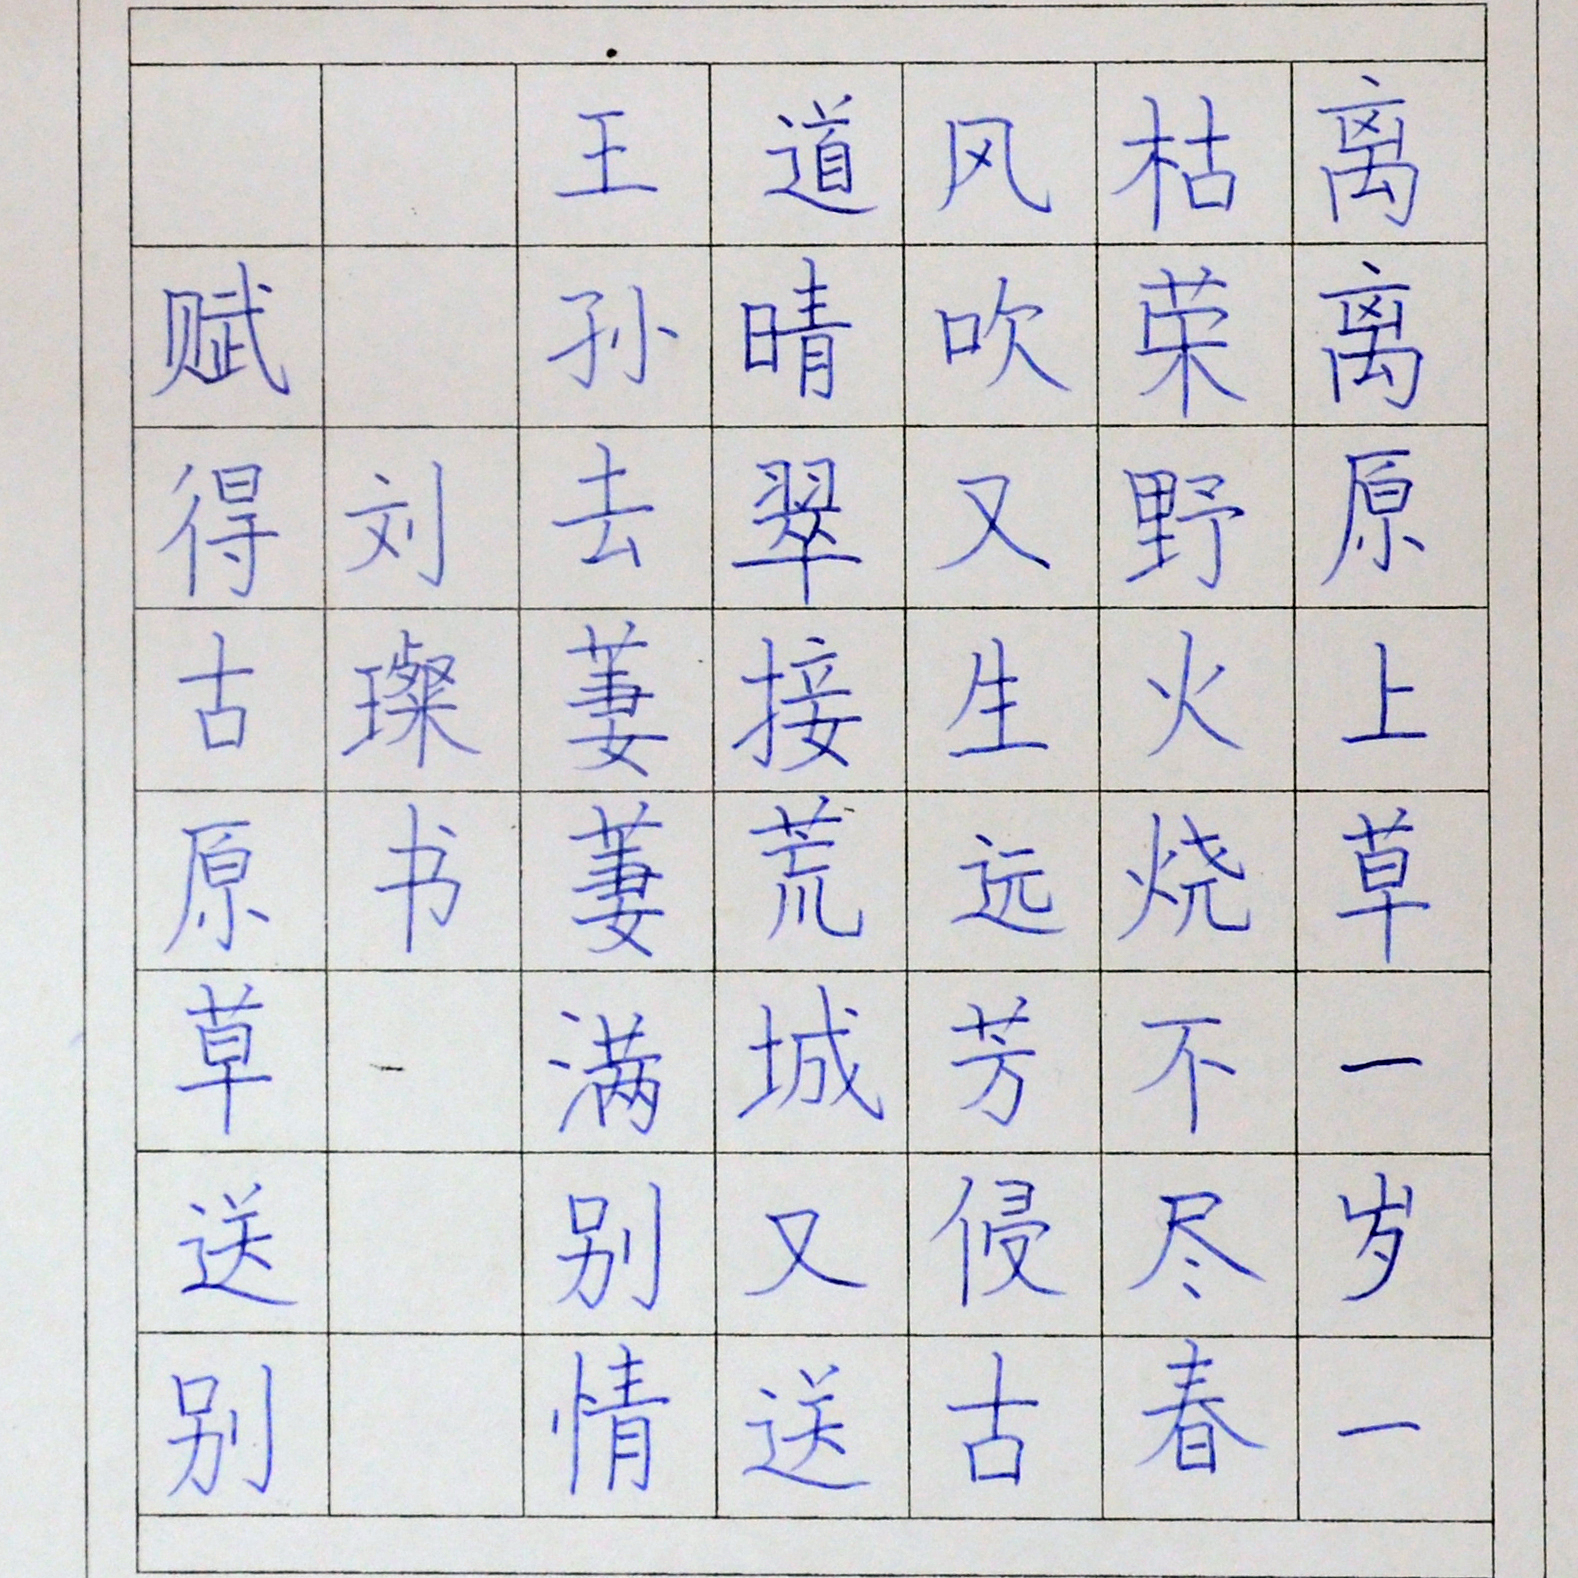 离离原上草一岁一
枯荣野火烧不尽春
风吹又生远芳侵古
道晴翠接荒城又送
王孙去萋萋满别情
刘璨书
赋得古原草送别